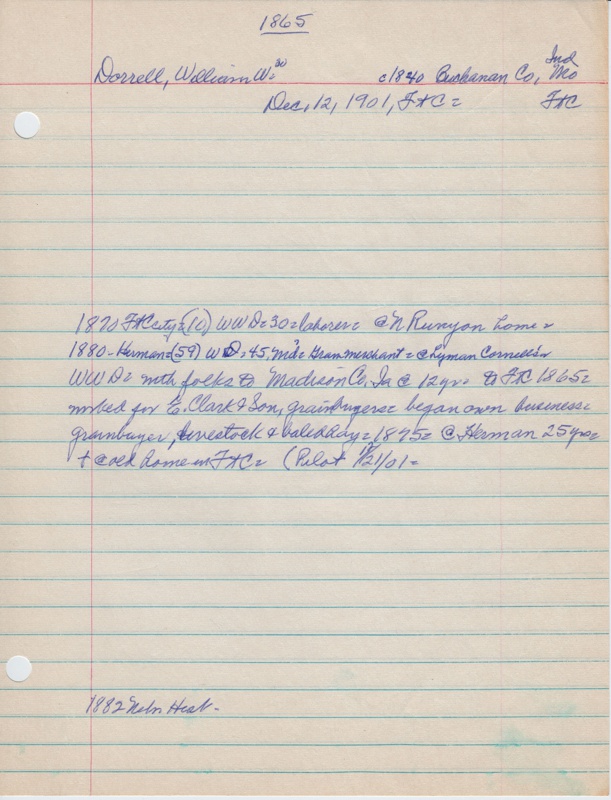 1865
Dorrell, William W= c1840 Buchanan Co, Ind Mo
Dec, 12, 1901, Ft C= Ft C
1870 Ft C city=(10) WWD=30=laborer= @ N Runyon home=
1880-Herman=(59) WD=45, Md= Grainmerchant= @ Lyman Cornell's=
WWD= with folks to Madison Co, Ia @ 12yrs to Ft C 1865=
worked for E. Clark & Son, grainbuyers= began own business=
grainbuyer, livestock & baled hay=1875= @ Herman 25yrs=
+ @ old home in Ft C= (Pilot 1/21/01=
1882 Nebr Hist-